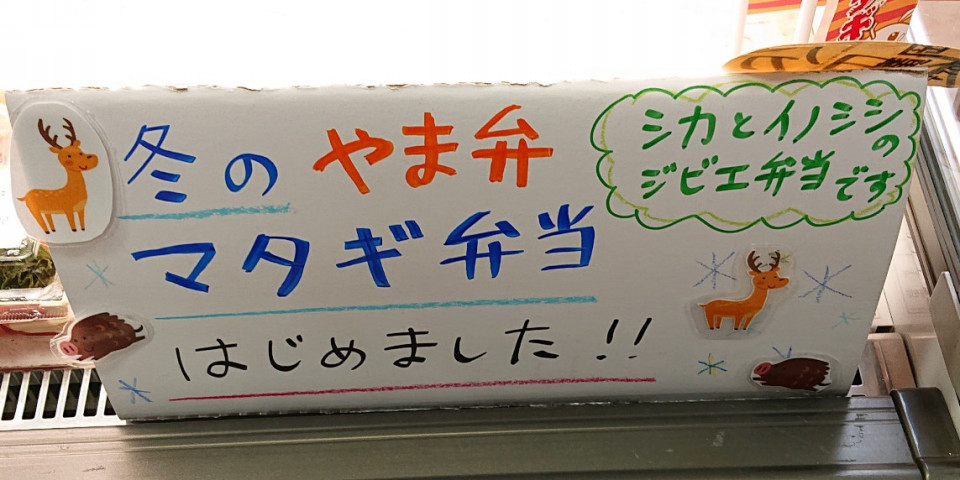 冬のやま弁
マタギ弁当
はじめました!!
シカとイノシシの
ジビエ弁当です